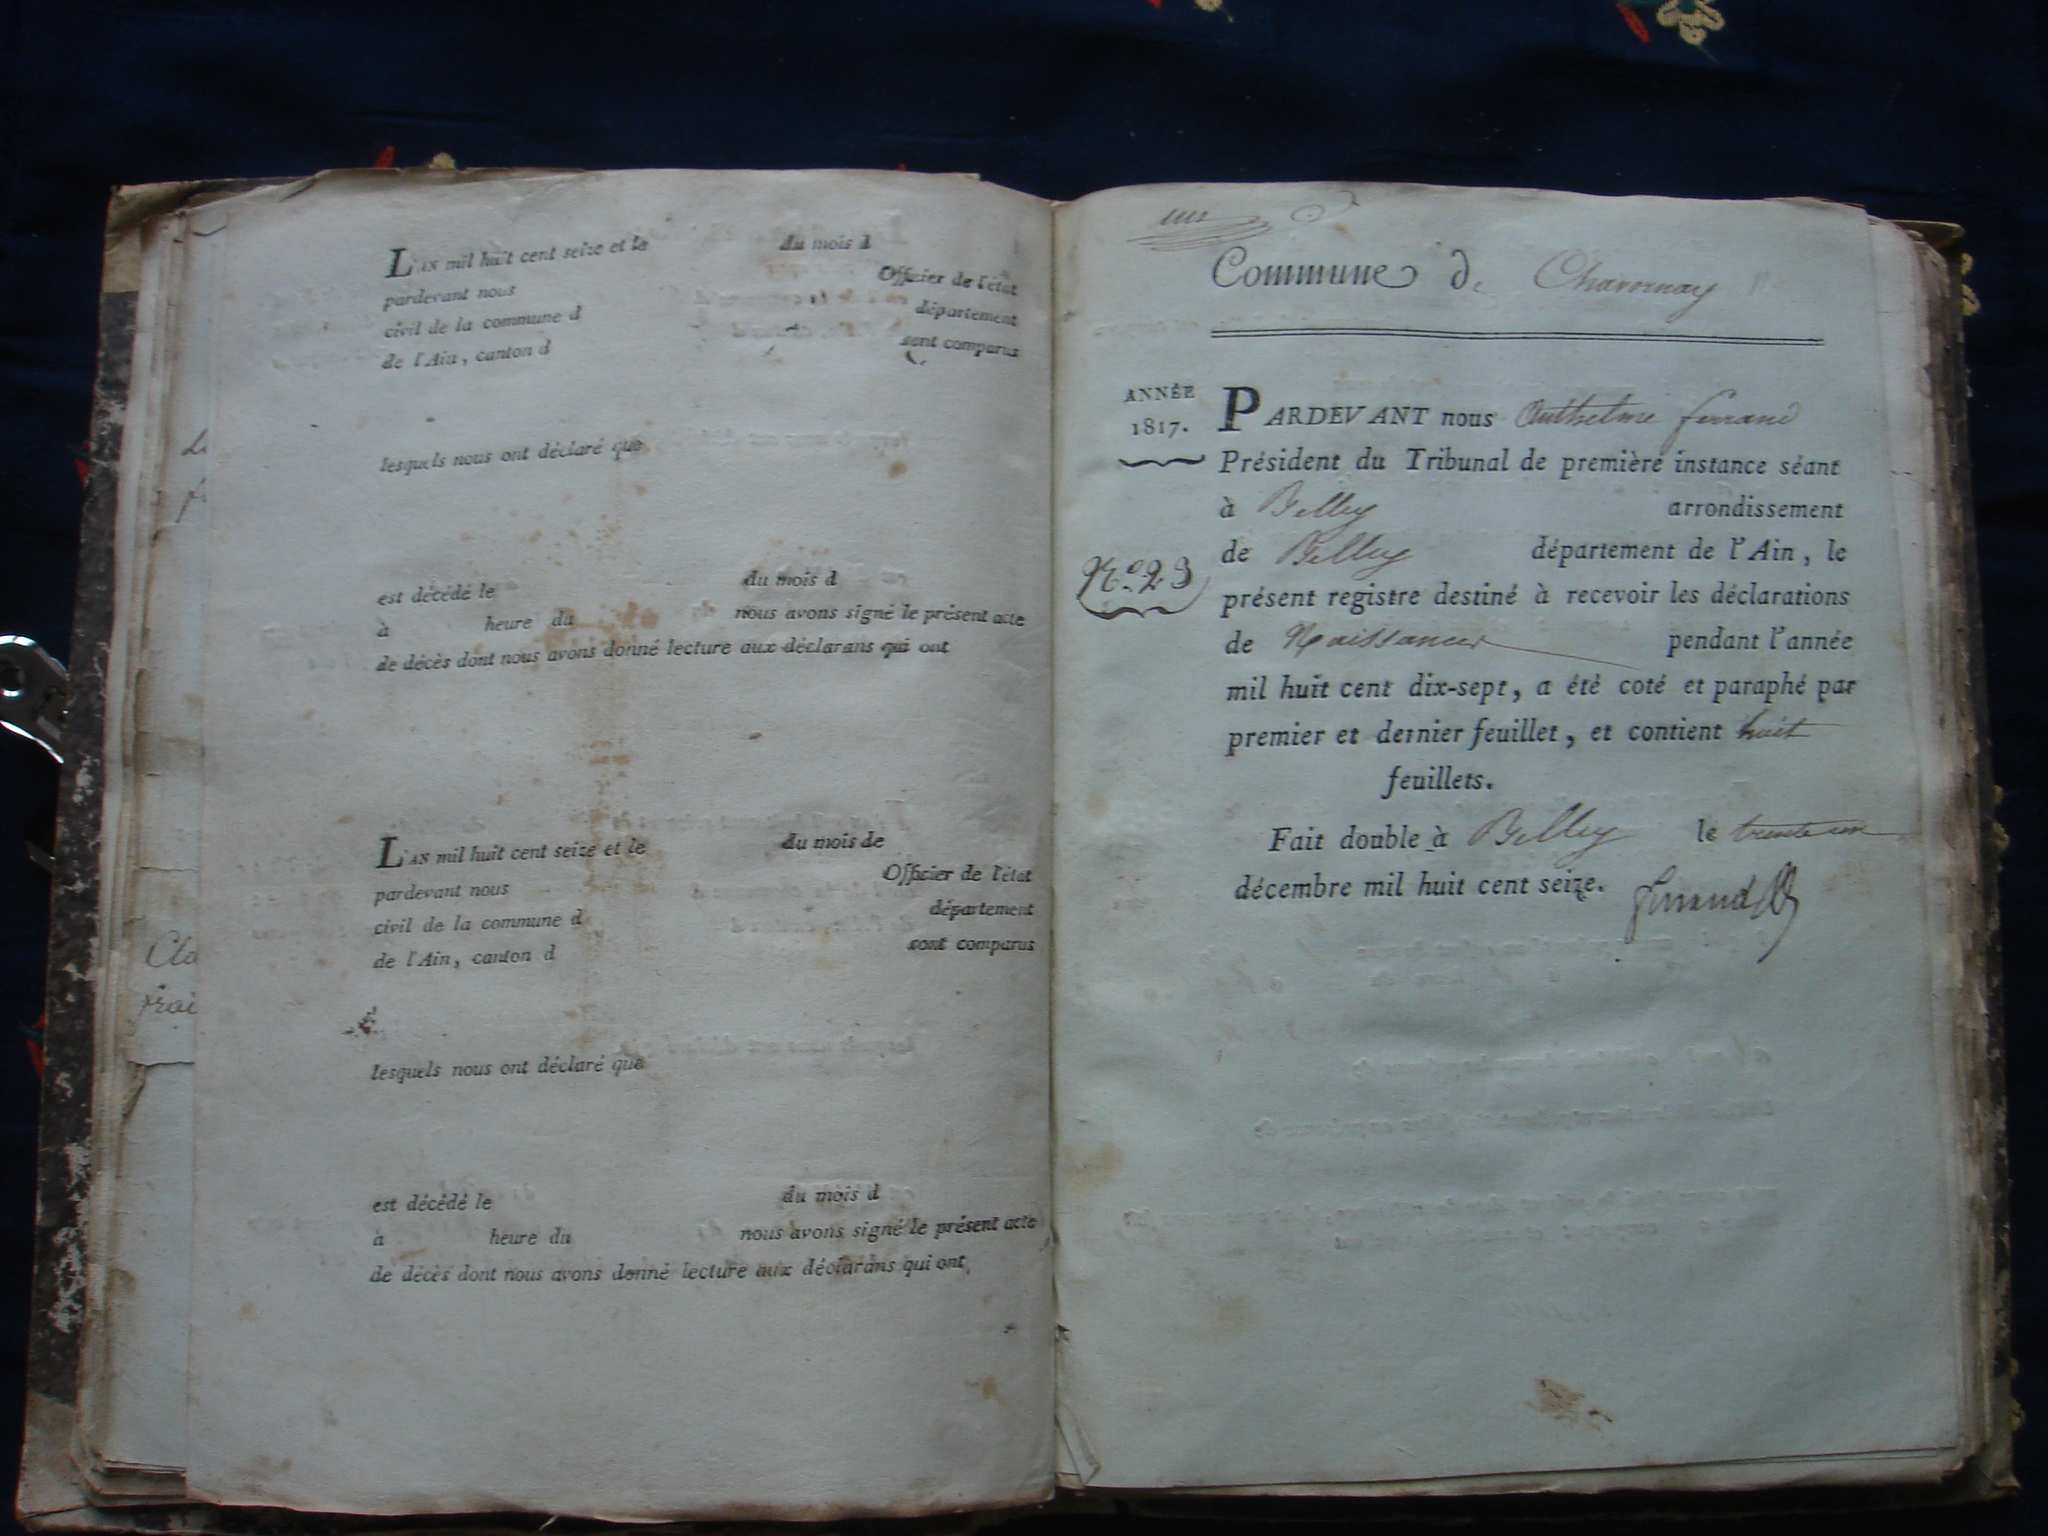 L'AN mil huit cent seize et le du mois d
pardevant nous Officier de l'état
civil de la commune d département
de l'Ain, canton d sont comparus
lesquels nous ont déclaré que
est décédé le du mois d
à heure du nous avons signé le présent acte
de décès dont nous avons donné lecture aux déclarans qui ont
Cla
frai
L'AN mil huit cent seize et le du mois de
pardevant nous Officier de l'état
civil de la commune d département
de l'Ain, canton d sont comparus
lesquels nous ont déclaré que
est décédé le du mois d
à heure du nous avons signé le présent acte
de décès dont nous avons donné lecture aux déclarans qui ont
Commune de Chavornay
ANNÉE
1817.
N.o 23
PARDEVANT nous Anthelme ferrand
Président du Tribunal de première instance séant
à Belley arrondissement
de Belley département de l'Ain, le
présent registre destiné à recevoir les déclarations
de Naissances pendant l'année
mil huit cent dix-sept, a été coté et paraphé par
premier et dernier feuillet, et contient huit
feuillets.
Fait double à Belley le trente un
décembre mil huit cent seize.
ferrand